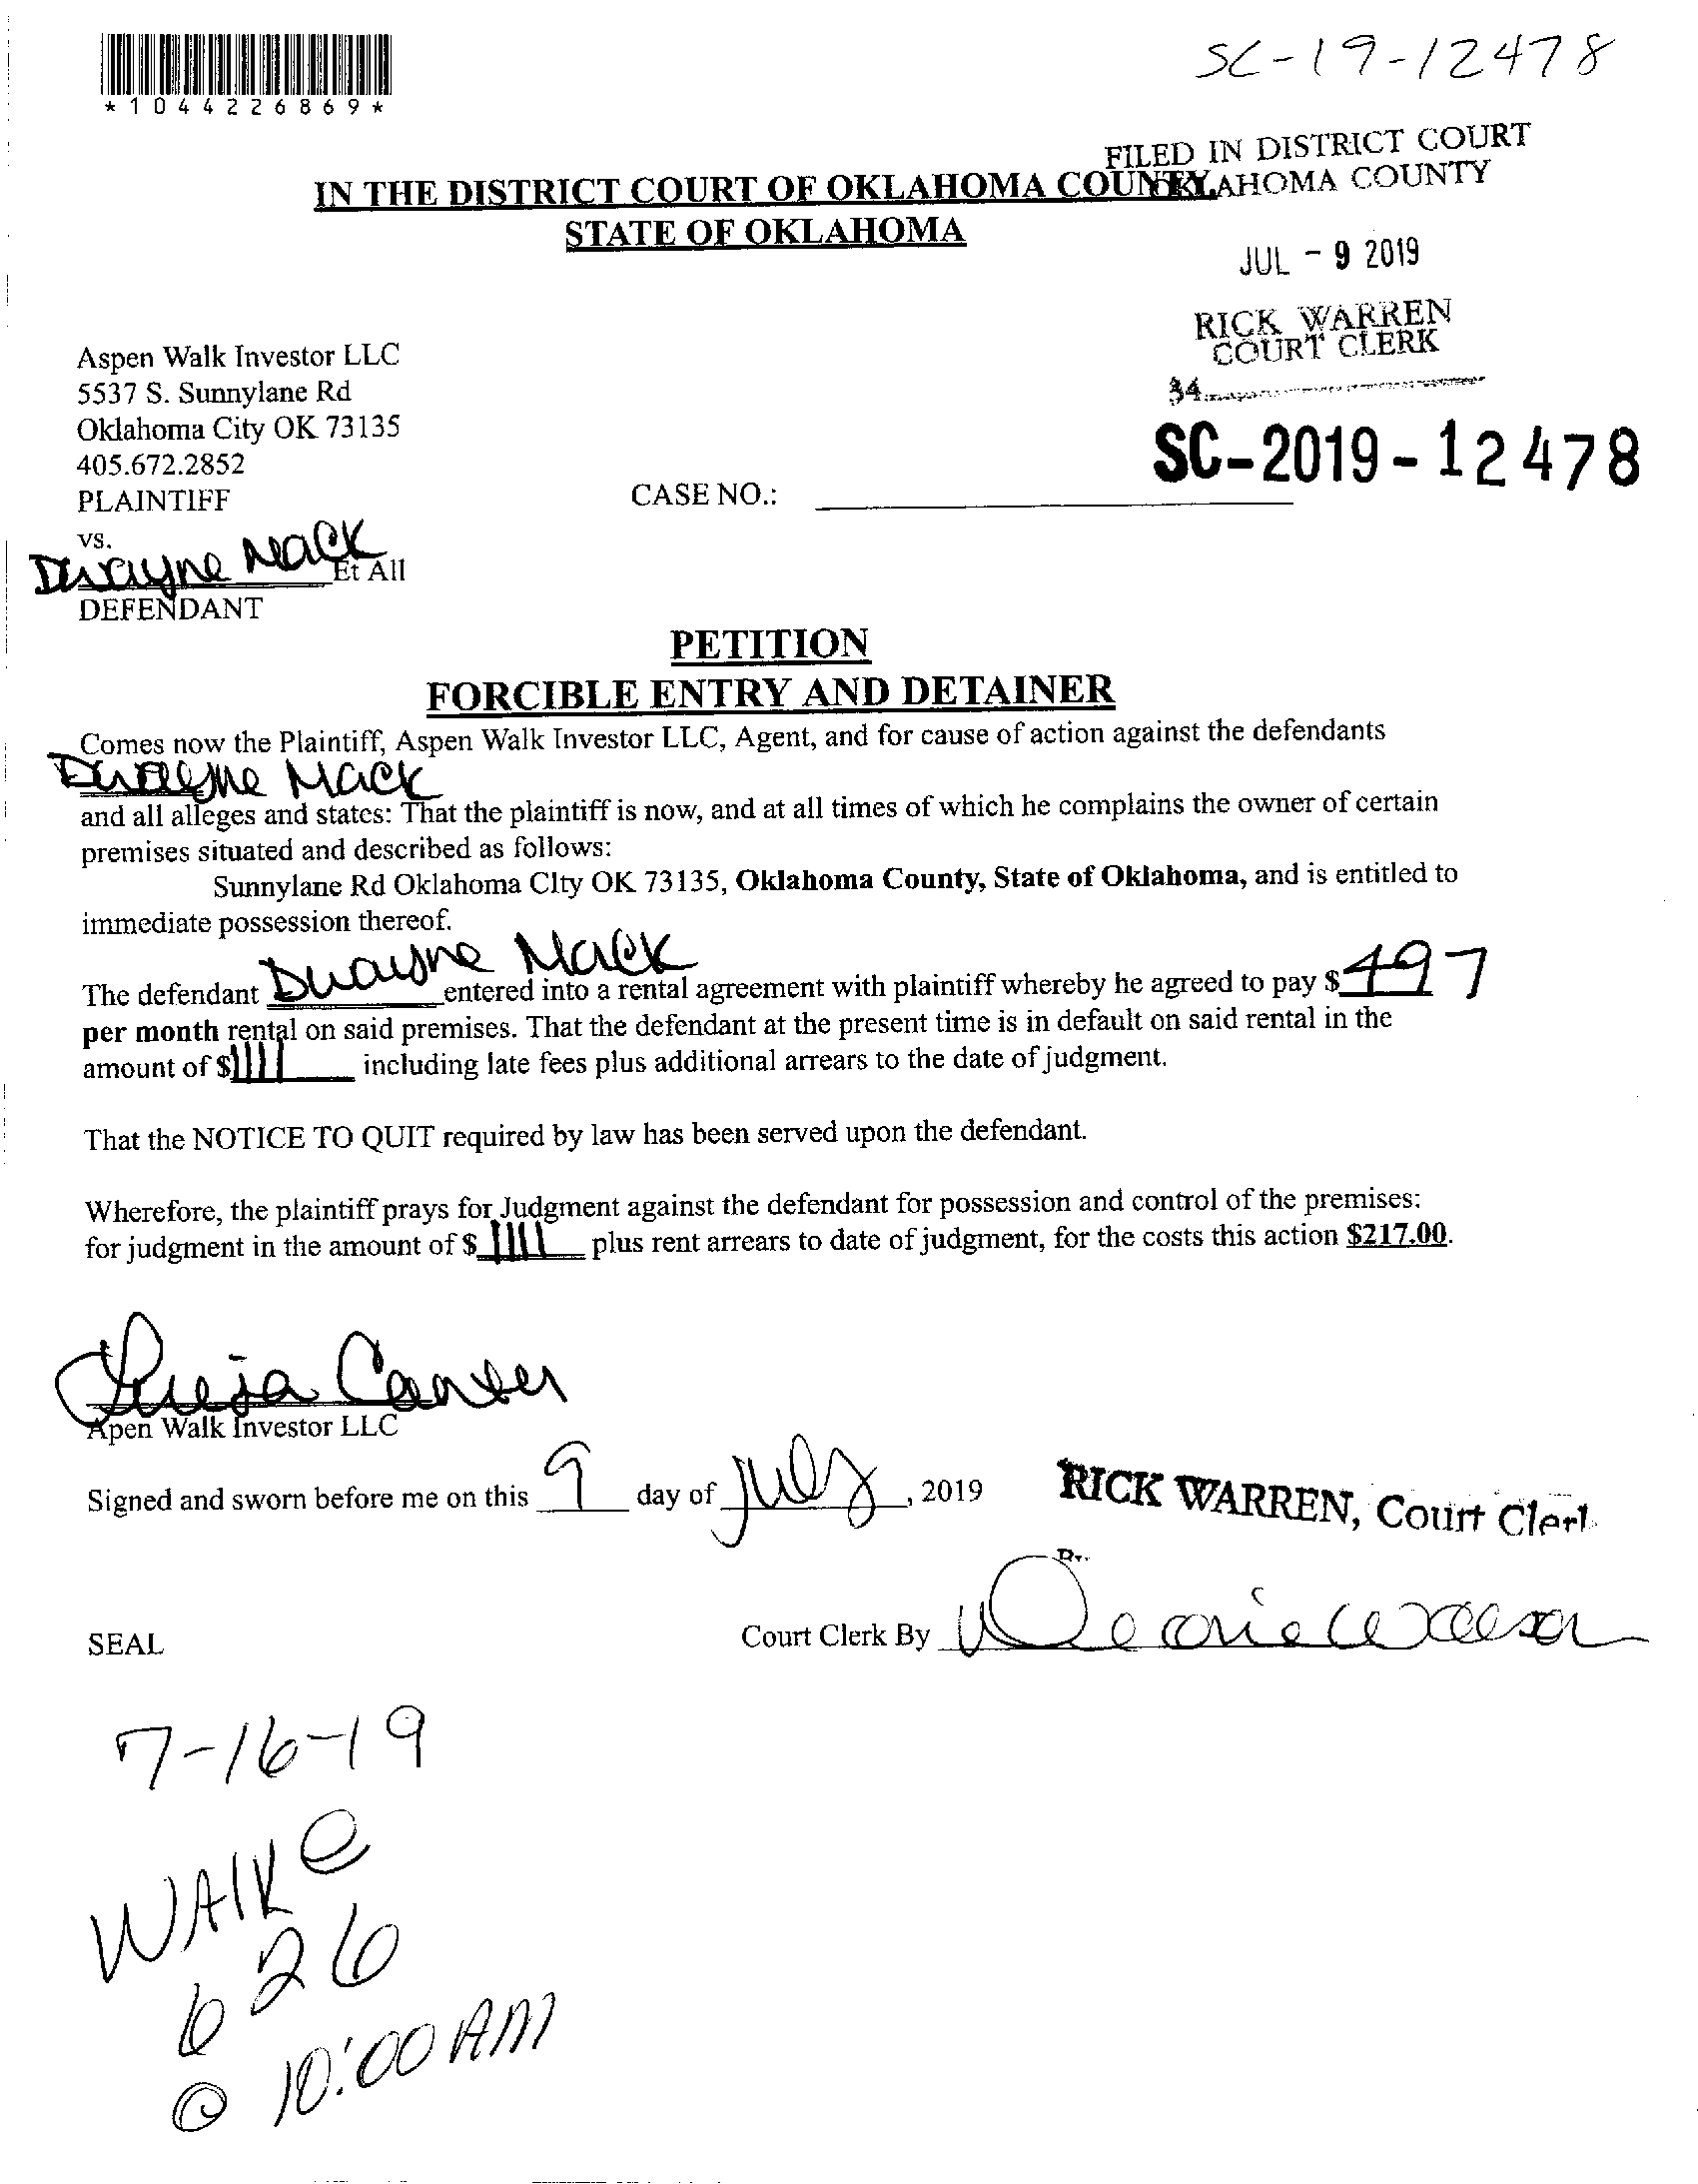 SC-19-12478
*1044226869*
FILED IN DISTRICT COURT
OKLAHOMA COUNTY
IN THE DISTRICT COURT OF OKLAHOMA COUNTY,
STATE OF OKLAHOMA
JUL - 9 2019
RICK WARREN
COURT CLERK
34
Aspen Walk Investor LLC
5537 S. Sunnylane Rd
Oklahoma City OK 73135
405.672.2852
SC-2019-12478
PLAINTIFF
CASE NO.:
vs.
Dwayne Mack Et All
DEFENDANT
PETITION
FORCIBLE ENTRY AND DETAINER
Comes now the Plaintiff, Aspen Walk Investor LLC, Agent, and for cause of action against the defendants
Dwayne Mack
and all alleges and states: That the plaintiff is now, and at all times of which he complains the owner of certain
premises situated and described as follows:
Sunnylane Rd Oklahoma CIty OK 73135, Oklahoma County, State of Oklahoma, and is entitled to
immediate possession thereof.
The defendant Dwayne Mack entered into a rental agreement with plaintiff whereby he agreed to pay $ 497
per month rental on said premises. That the defendant at the present time is in default on said rental in the
amount of $1111 including late fees plus additional arrears to the date of judgment.
That the NOTICE TO QUIT required by law has been served upon the defendant.
Wherefore, the plaintiff prays for Judgment against the defendant for possession and control of the premises:
for judgment in the amount of $ 1111 plus rent arrears to date of judgment, for the costs this action $217.00.
Apen Walk Investor LLC
Signed and sworn before me on this 9 day of July, 2019
RICK WARREN, Court Clerk
By
SEAL
Court Clerk By
7-16-19
WALKE
626
@ 10:00 AM